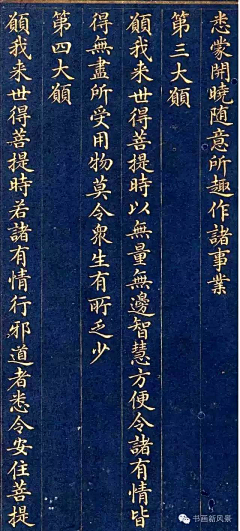 悉蒙開曉隨意所趣作諸事業
第三大願
願我来世得菩提時以無量無邊智慧方便令諸有情皆
得無盡所受用物莫令衆生有所乏少
第四大願
願我来世得菩提時若諸有情行邪道者悉令安住菩提
书画新风景